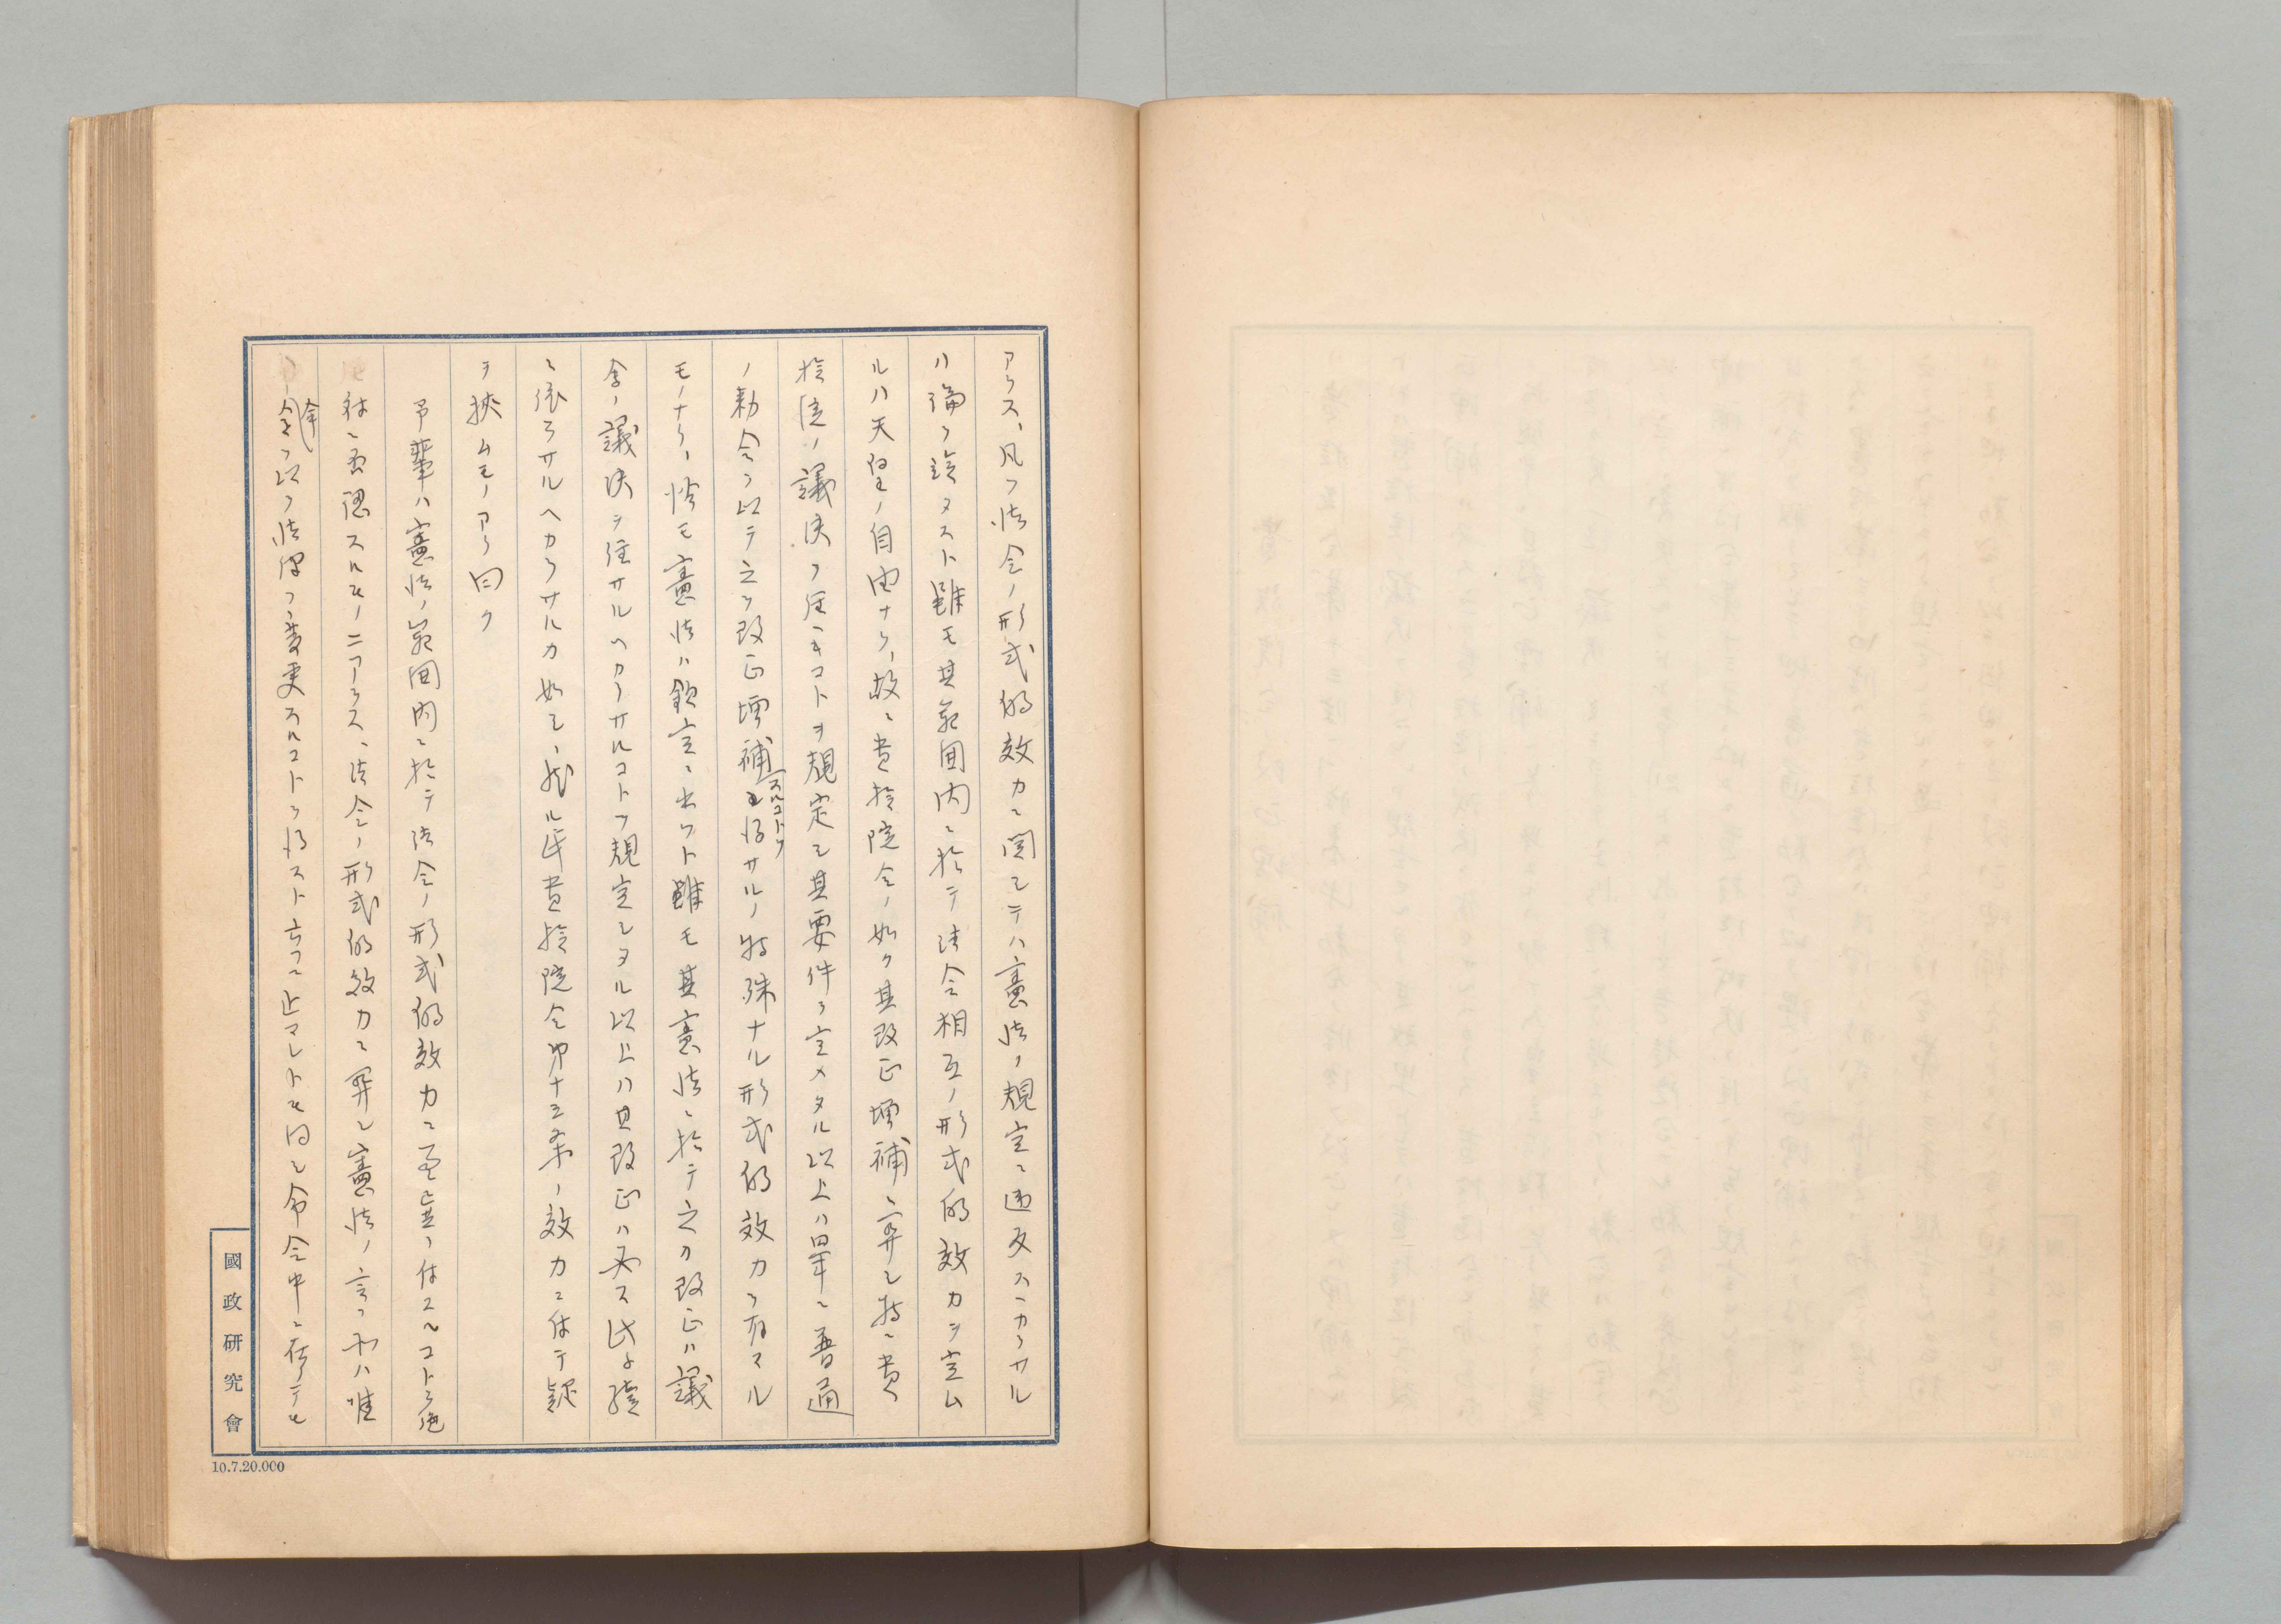 アラス、凡ソ法令ノ形式的效力ニ関シテハ憲法ノ規定ニ違反スヘカラサル
ハ論ヲ竢タスト雖モ其範囲内ニ於テ法令相互ノ形式的效力ヲ定ム
ルハ天皇ノ自由ナリ、故ニ貴族院令ノ如ク其改正増補ニ関シ特ニ貴
族院ノ議決ヲ経ヘキコトヲ規定シ其要件ヲ定メタル以上ハ単ニ普通
ノ勅令ヲ以テ之ヲ改正増補スルコトヲ得サルノ特殊ナル形式的效力ヲ有スル
モノナリ、恰モ憲法ハ欽定ニ出ツト雖モ其憲法ニ於テ之カ改正ハ議
会ノ議決ヲ経サルヘカラサルコトヲ規定シタル以上ハ其改正ハ必ス此手続
ニ依ラサルヘカラサルカ如シ、然ルニ貴族院令第十三条ノ效力ニ付テ疑
ヲ挾ムモノアリ曰ク
予輩ハ憲法ノ範囲内ニ於テ法令ノ形式的效力ニ差異ヲ付スルコトヲ絶
対ニ否認スルモノニアラス、法令ノ形式的效力ニ関シ憲法ノ言フ所ハ唯
命令ヲ以テ法律ヲ変更スルコトヲ得スト云フニ止マレトモ同シ命令中ニ在リテモ
國政研究會
10.7.20.000